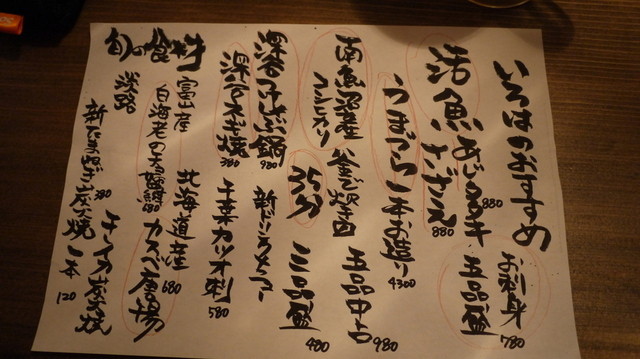 いろはのおすすめ
お刺身
五品盛
780
活魚
あじタタキ
880
さざえ
880
うまづら一本お造り
4300
南魚沼産
コシヒカリ
釜で炊き
35分
五品中
980
三品盛
480
深谷ねぎ
鍋
980
深谷ネギ焼
380
新じゃがバター
千葉カツオ刺
580
旬の食材
富山産
白海老の
680
北海道産
カスベ唐揚
680
淡路
新たまねぎ炭火焼
380
チレイカ炭火焼
一本
120